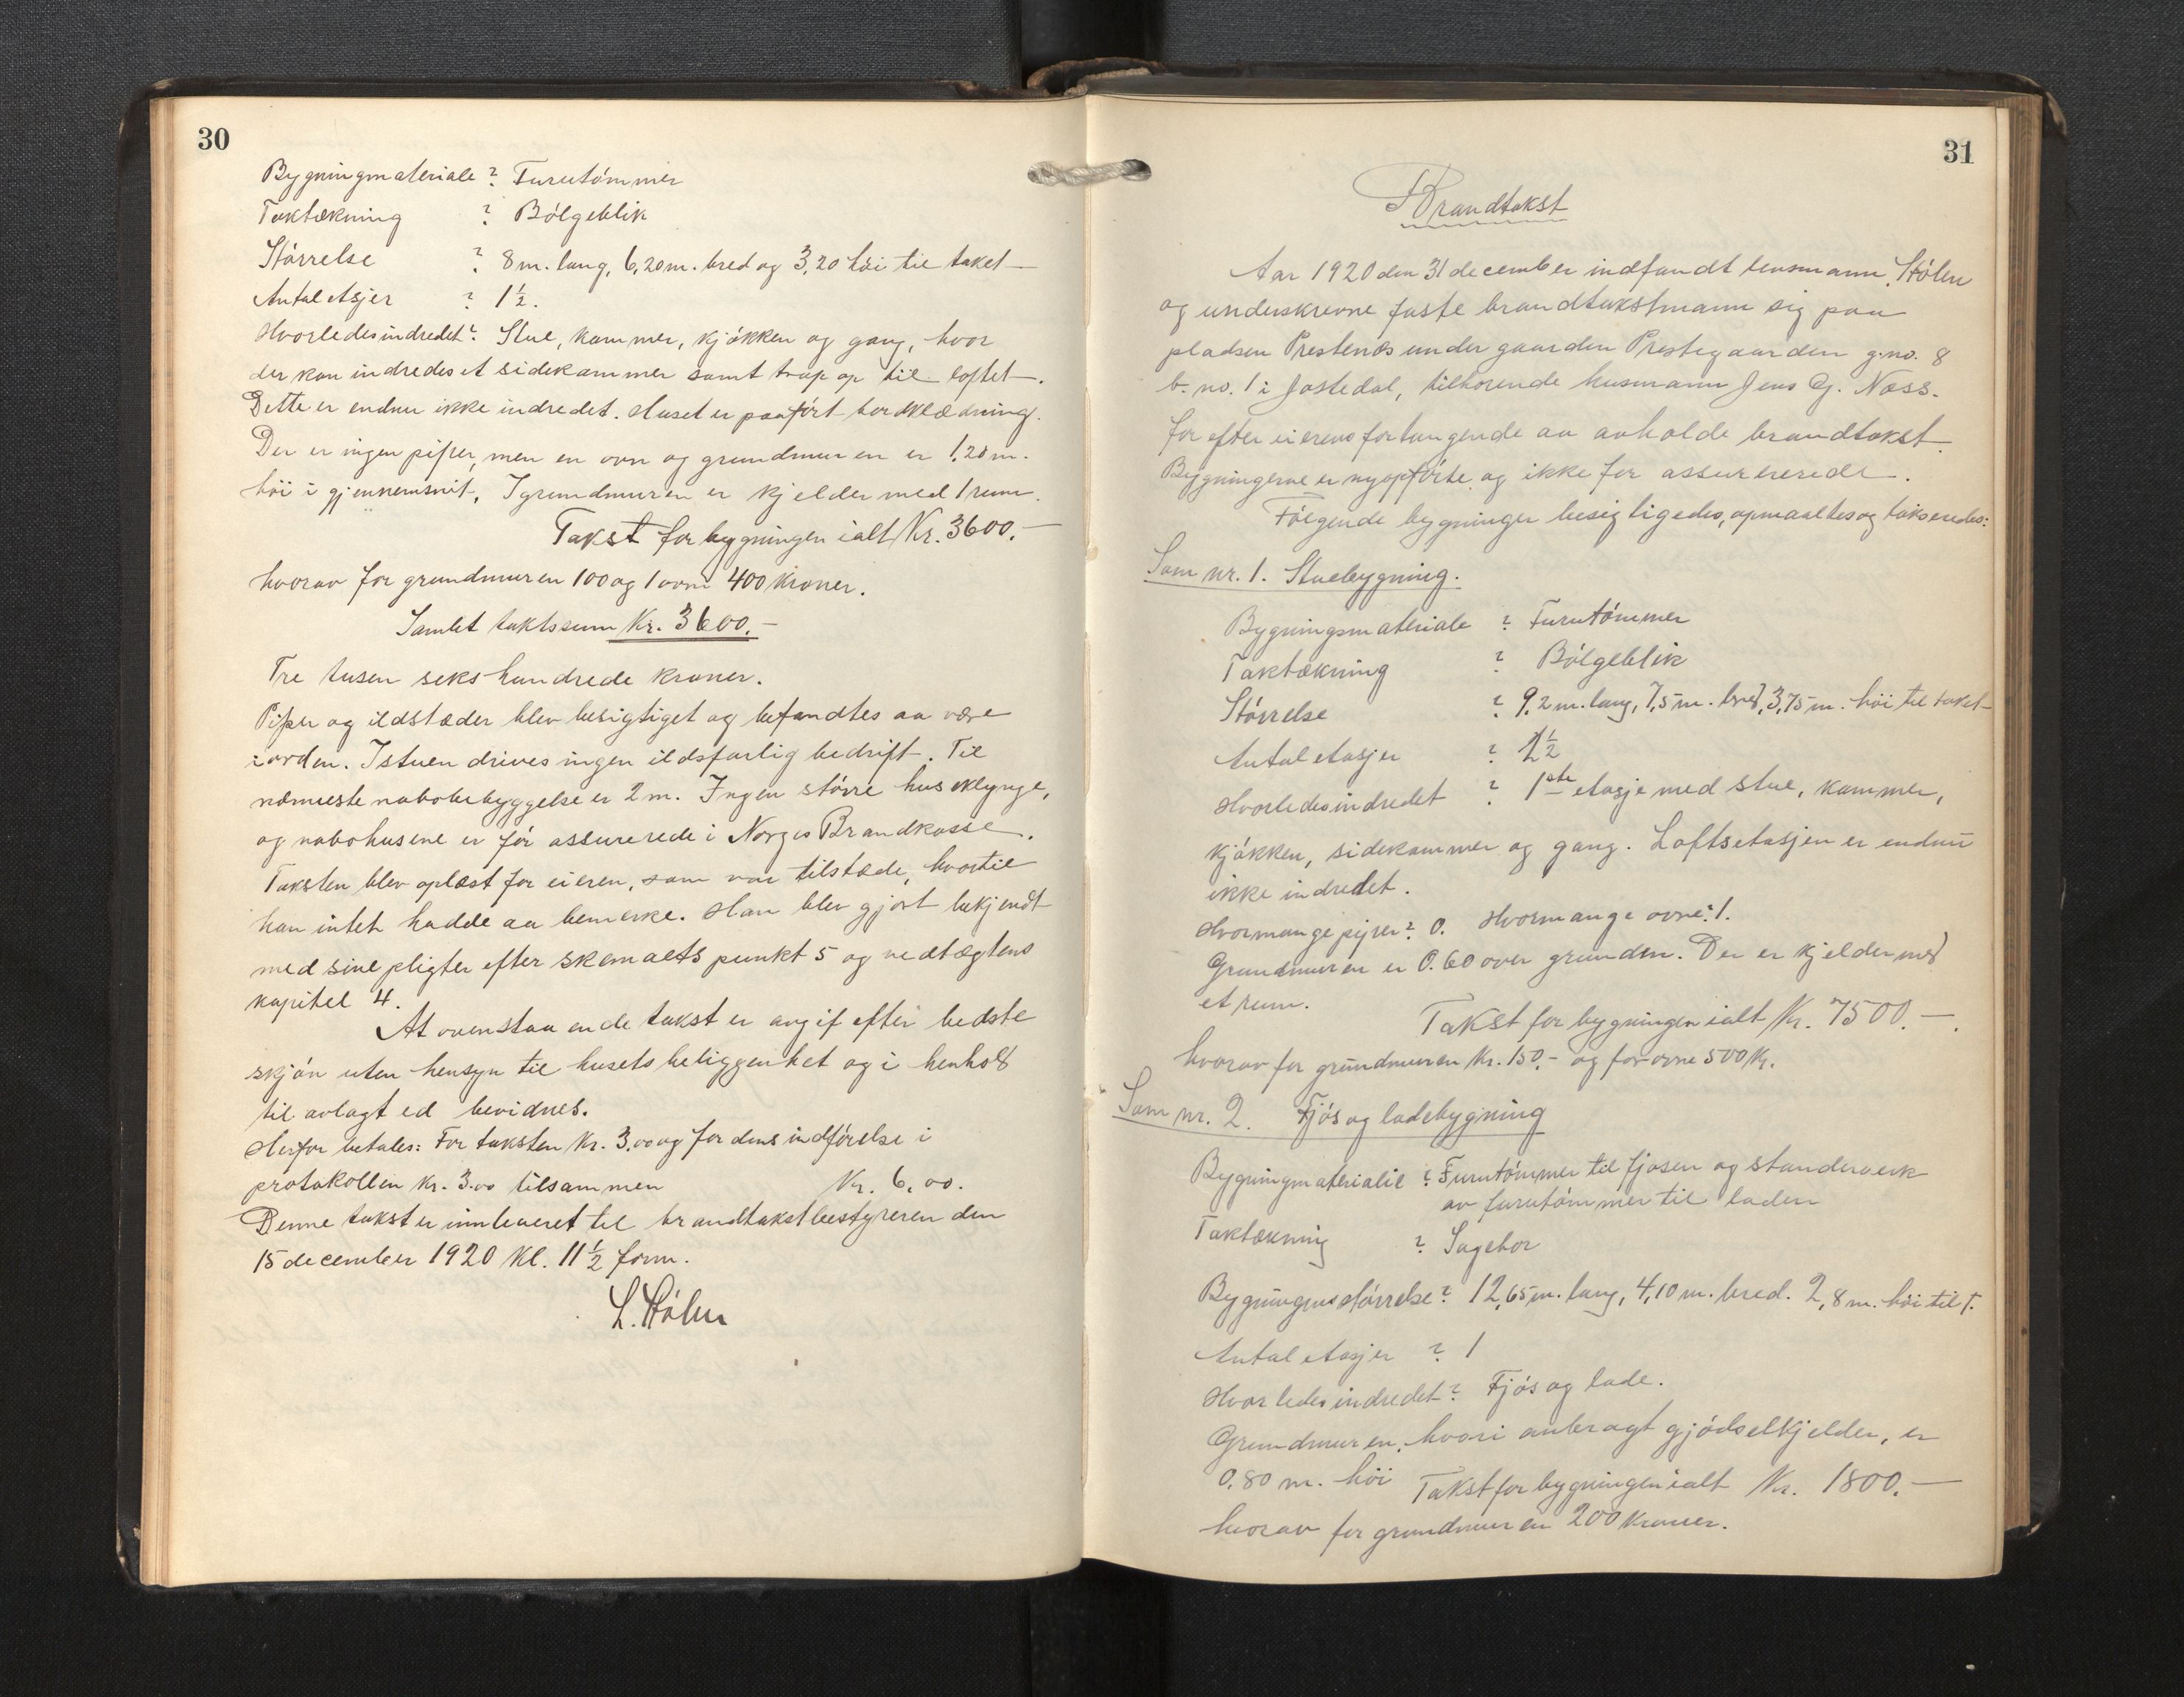 30
Bygningmateriale ? Furutömmer
Taktækning ? Bölgeblik
Störrelse ? 8 m. lang, 6,20 m. bred og 3,20 höi til taket
Antal etsjer ? 1½.
Hvorledes indredet? Stue, kammer, kjökken og gang, hvor
der kan indredes et sidekammer samt trap op til loftet.
Dette er endnu ikke indredet. Huset er paafört bordklædning.
Der er ingen piper, men en ovn og grundmuren er 1,20 m.
höi i gjennemsnit, I grundmuren er kjelder med 1 rum.
Takst for bygningen ialt Kr. 3600.—
hvorav for grundmuren 100 og 1 ovn 400 kroner.
Samlet taktssum Kr. 3600.—
Tre tusen seks hundrede kroner.
Piper og ildstæder blev besigtiget og befandtes aa være
i orden. I stuen drives ingen ildsfarlig bedrift. Til
nærmeste nabobebyggelse er 2 m. Ingen större husklynge,
og nabohusene er för assurerede i Norges Brandkasse.
Taksten blev oplæst for eieren, som var tilstæde, hvortil
han intet hadde aa bemerke. Han blev gjort bekjendt
med sine pligter efter skemaets punkt 5 og vedtægtens
kapitel 4.
At ovenstaaende takst er avgit efter bedste
skjön uten hensyn til husets beliggenhet og i henhold
til avlagt ed bevidnes.
Herfor betales: For taksten kr. 3,00 og for dens indförelse i
protokollen kr. 3.00 tilsammen Kr. 6,00.
Denne takst er innleveret til brandtakstbestyreren den
15 december 1920 kl. 11½ form.
L. Stölen
31
Brandtakst
Aar 1920 den 31 december indfandt lensmann Stölen
og underskrevne faste brandtakstmann sig paa
pladsen Prestenæs under gaarden Prestegaarden g.no. 8
b.no. 1 i Jostedal, tilhörende husmann Jens G. Næss.
for efter eierens forlangende aa avholde brandtakst.
Bygningerne er nyopförte og ikke för assurererede.
Fölgende bygninger besigtigedes, opmaaltes og takseredes:
Som nr. 1. Stuebygning.
Bygningsmateriale ? Furutömmer
Taktækning ? Bölgeblik
Störrelse ? 9,2 m. lang, 7,5 m. bred, 3,75 m. höi til taket
Antal etasjer ? 1½
Hvorledes indredet ? 1ste etasje med stue, kammer,
kjökken, sidekammer og gang. Loftsetasjen er endnu
ikke indredet.
Hvormange piper? 0. Hvormange ovne? 1.
Grundmuren er 0.60 over grunden. Der er kjelder med
et rum.
Takst for bygningen ialt Kr. 7500.—
hvorav for grundmuren Kr. 150.- og for ovne 500 Kr.
Som nr. 2. Fjös og ladebygning
Bygningmaterialie ? Furutömmer til fjosen og standerverk
av furutömmer til laden
Taktækning ? Sagebor
Bygningens störrelse? 12,65 m. lang, 4,10 m. bred. 2,8 m. höi til t.
Antal etasjer ? 1
Hvorledes indredet? Fjös og lade.
Grundmuren, hvori anbragt gjödselkjelder, er
0.80 m. höi Takst for bygningen ialt Kr. 1800.—
hvorav for grundmuren 200 kroner.